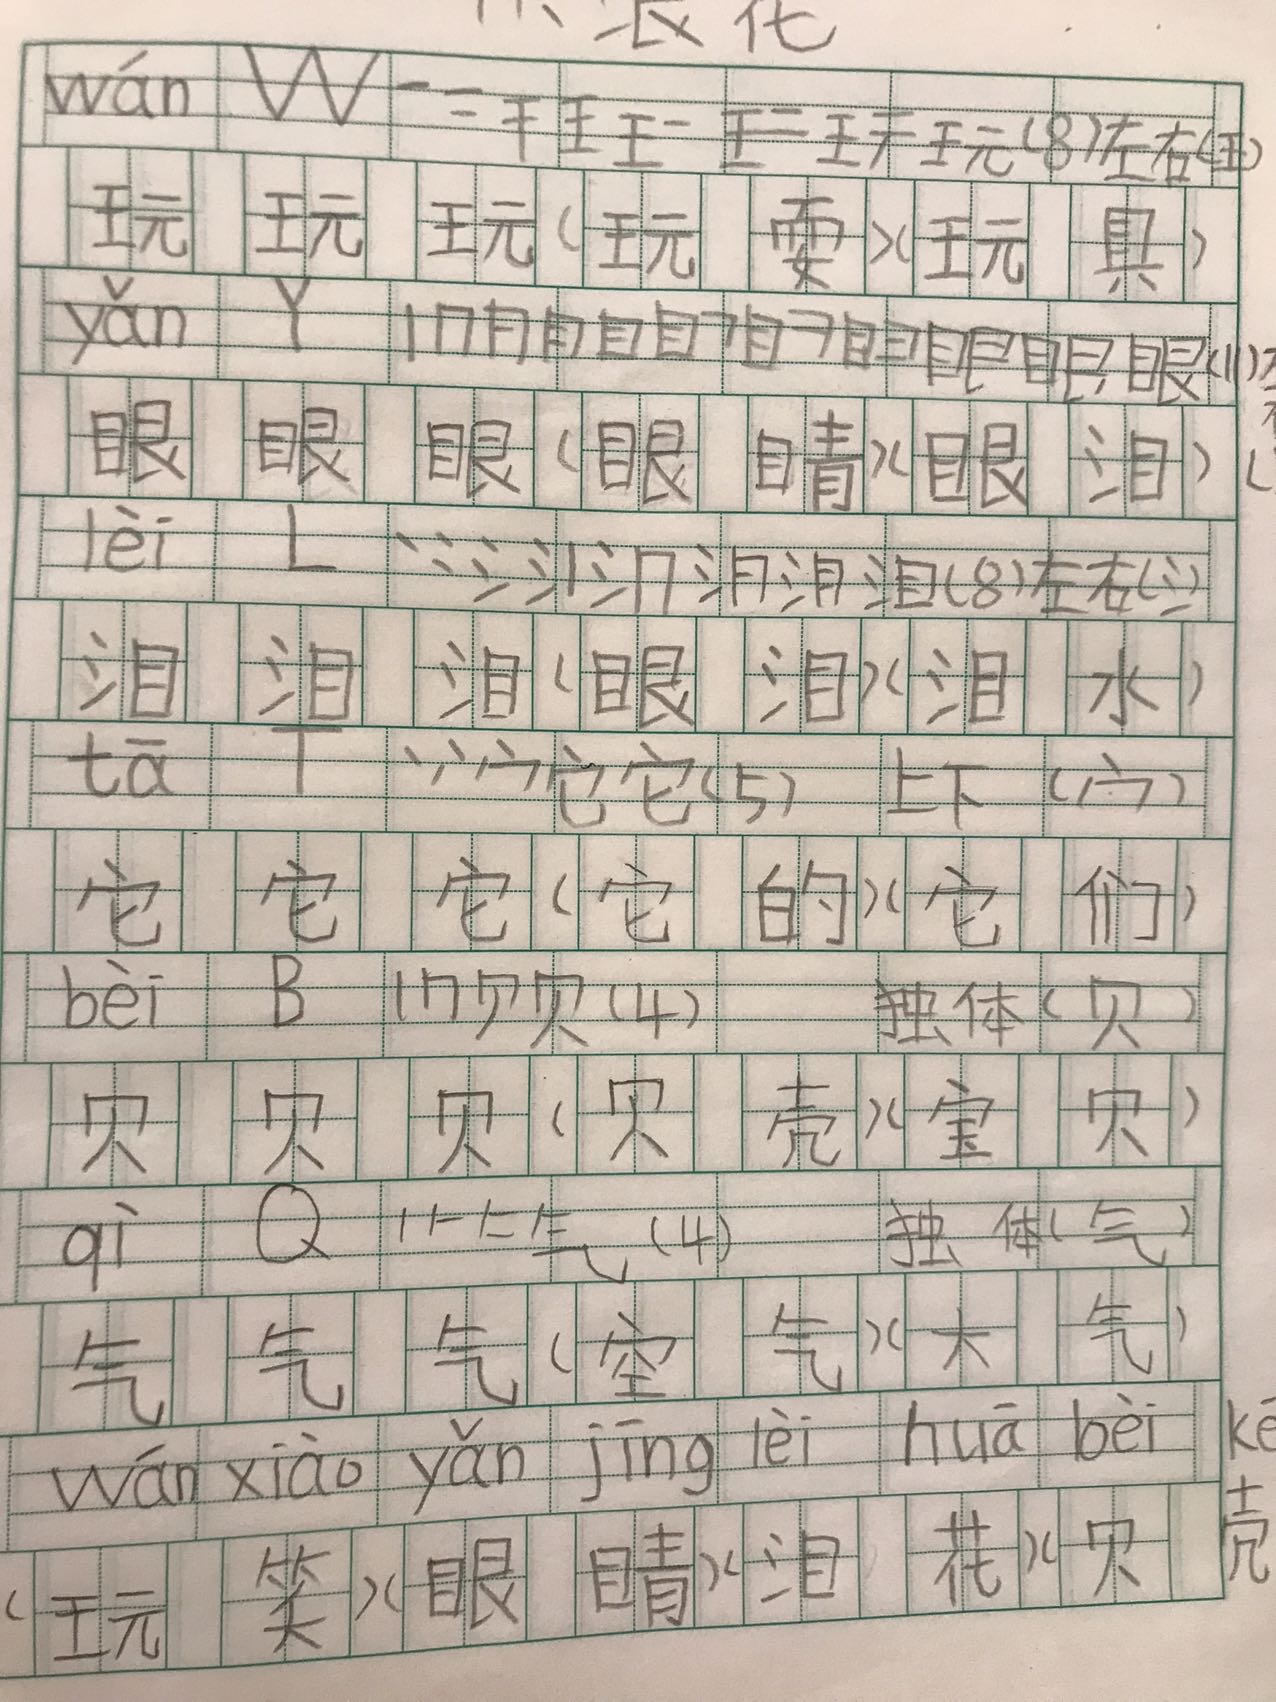 wán W 一 二 干 王 王一 王二 王テ 玩(8)左右(王)
玩 玩 玩(玩 耍)(玩 具)
yǎn Y 眼(11)
眼 眼 眼(眼 睛)(眼 泪)
lèi L 丶 冫 氵 泪(8)左右(氵)
泪 泪 泪(眼 泪)(泪 水)
tā T 丶 宀 它 它(5) 上下(宀)
它 它 它(它 的)(它 们)
bèi B 丨 冂 贝 贝(4) 独体(贝)
贝 贝 贝(贝 壳)(宝 贝)
qì Q 丿 𠂉 气(4) 独体(气)
气 气 气(空 气)(大 气)
wán xiào yǎn jīng lèi huā bèi ké
(玩 笑)(眼 睛)(泪 花)(贝 壳